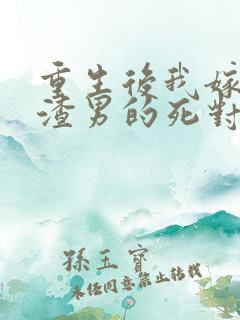 重生後我嫁
渣男的死對
孫玉寶
未經同意禁止轉載